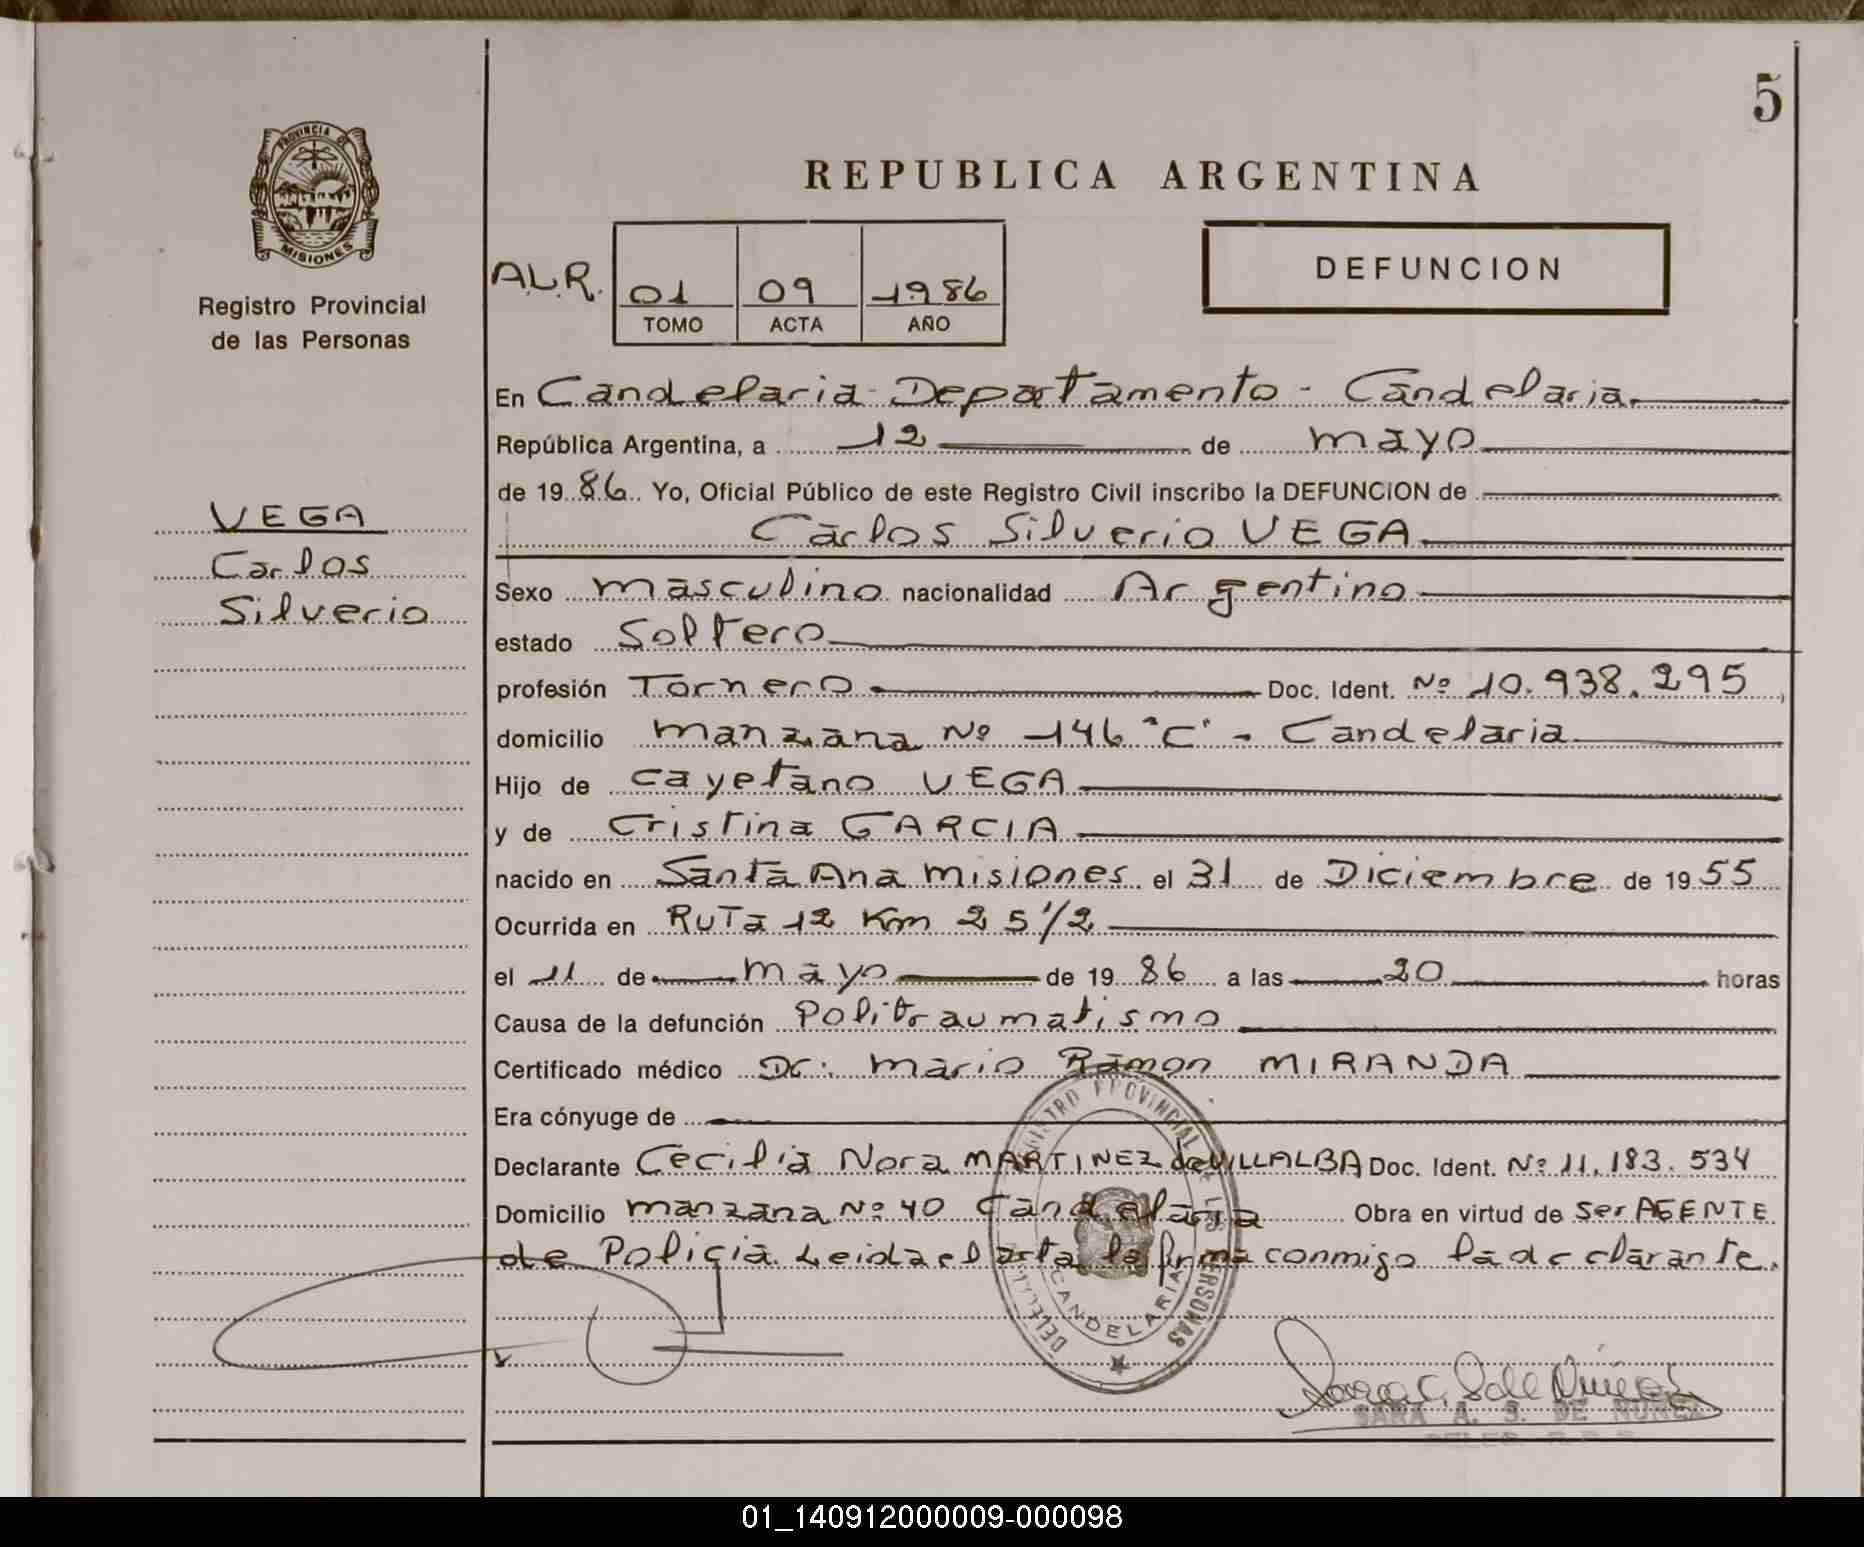 5
PROVINCIA DE
MISIONES
Registro Provincial
de las Personas
REPUBLICA ARGENTINA
DEFUNCION
A.L.R.
01 09 1986
TOMO ACTA AÑO
VEGA
Carlos
Silverio
En Candelaria - Departamento - Candelaria.
República Argentina, a 12 de mayo
de 1986. Yo, Oficial Público de este Registro Civil inscribo la DEFUNCION de
Carlos Silverio VEGA
Sexo masculino nacionalidad Argentino
estado Soltero
profesión Tornero Doc. Ident. Nº 10.938.295
domicilio manzana Nº 146 "C" - Candelaria
Hijo de Cayetano VEGA
y de Cristina GARCIA
nacido en Santa Ana misiones el 31 de Diciembre de 1955
Ocurrida en RUTA 12 Km 25 1/2
el 11 de mayo de 1986 a las 20 horas
Causa de la defunción Politraumatismo
Certificado médico Dr. mario Ramon MIRANDA
Era cónyuge de
Declarante Cecilia Nora MARTINEZ de VILLALBA Doc. Ident. Nº 11.183.534
Domicilio manzana Nº 40 Candelaria Obra en virtud de Ser AGENTE
de Policia. Leida el acta la firma conmigo la declarante.
REGISTRO PROVINCIAL DE LAS PERSONAS
CANDELARIA
SARA A. S. DE NUÑEZ
01_140912000009-000098